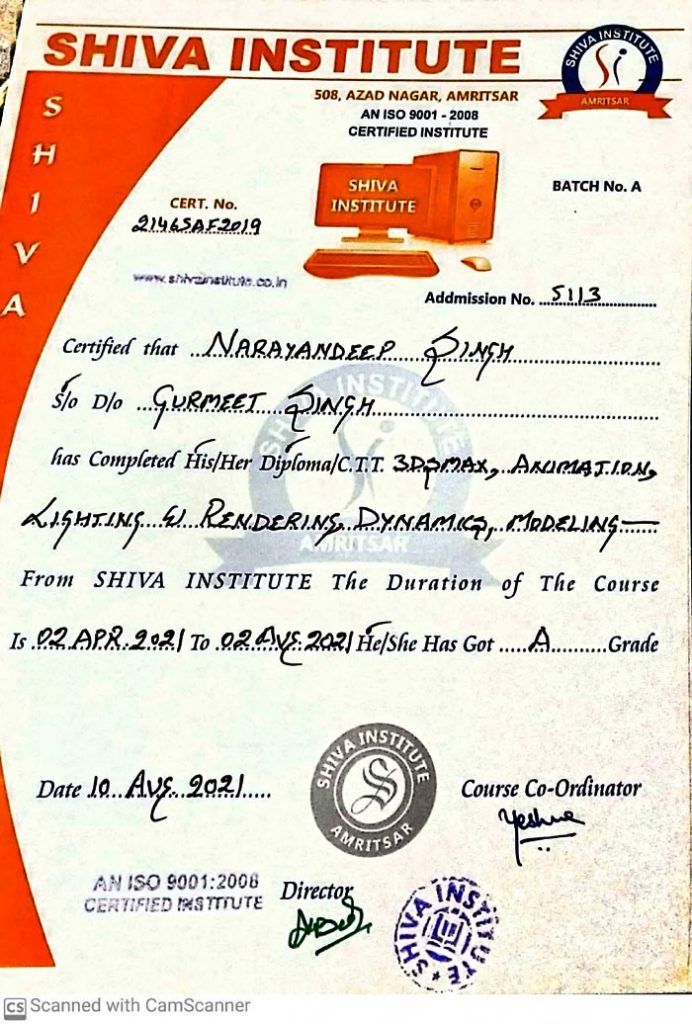 SHIVA INSTITUTE
SHIVA INSTITUTE
Si
AMRITSAR
508, AZAD NAGAR, AMRITSAR
AN ISO 9001 - 2008
CERTIFIED INSTITUTE
SHIVA
SHIVA
INSTITUTE
BATCH No. A
CERT. No.
2146SAF2019
www.shivainstitute.co.in
Addmission No. 5113
Certified that NARAYANDEEP SINGH
S/o D/o GURMEET SINGH
has Completed His/Her Diploma/C.T.T. 3DSMAX, ANIMATION,
LIGHTING & RENDERING, DYNAMICS, MODELING
SHIVA INSTITUTE
Si
AMRITSAR
From SHIVA INSTITUTE The Duration of The Course
Is 02 APR. 2021 To 02 AUG. 2021 He/She Has Got A Grade
SHIVA INSTITUTE
AMRITSAR
Date 10 AUG. 2021
Course Co-Ordinator
AN ISO 9001:2008
CERTIFIED INSTITUTE
Director
SHIVA INSTITUTE
CS Scanned with CamScanner